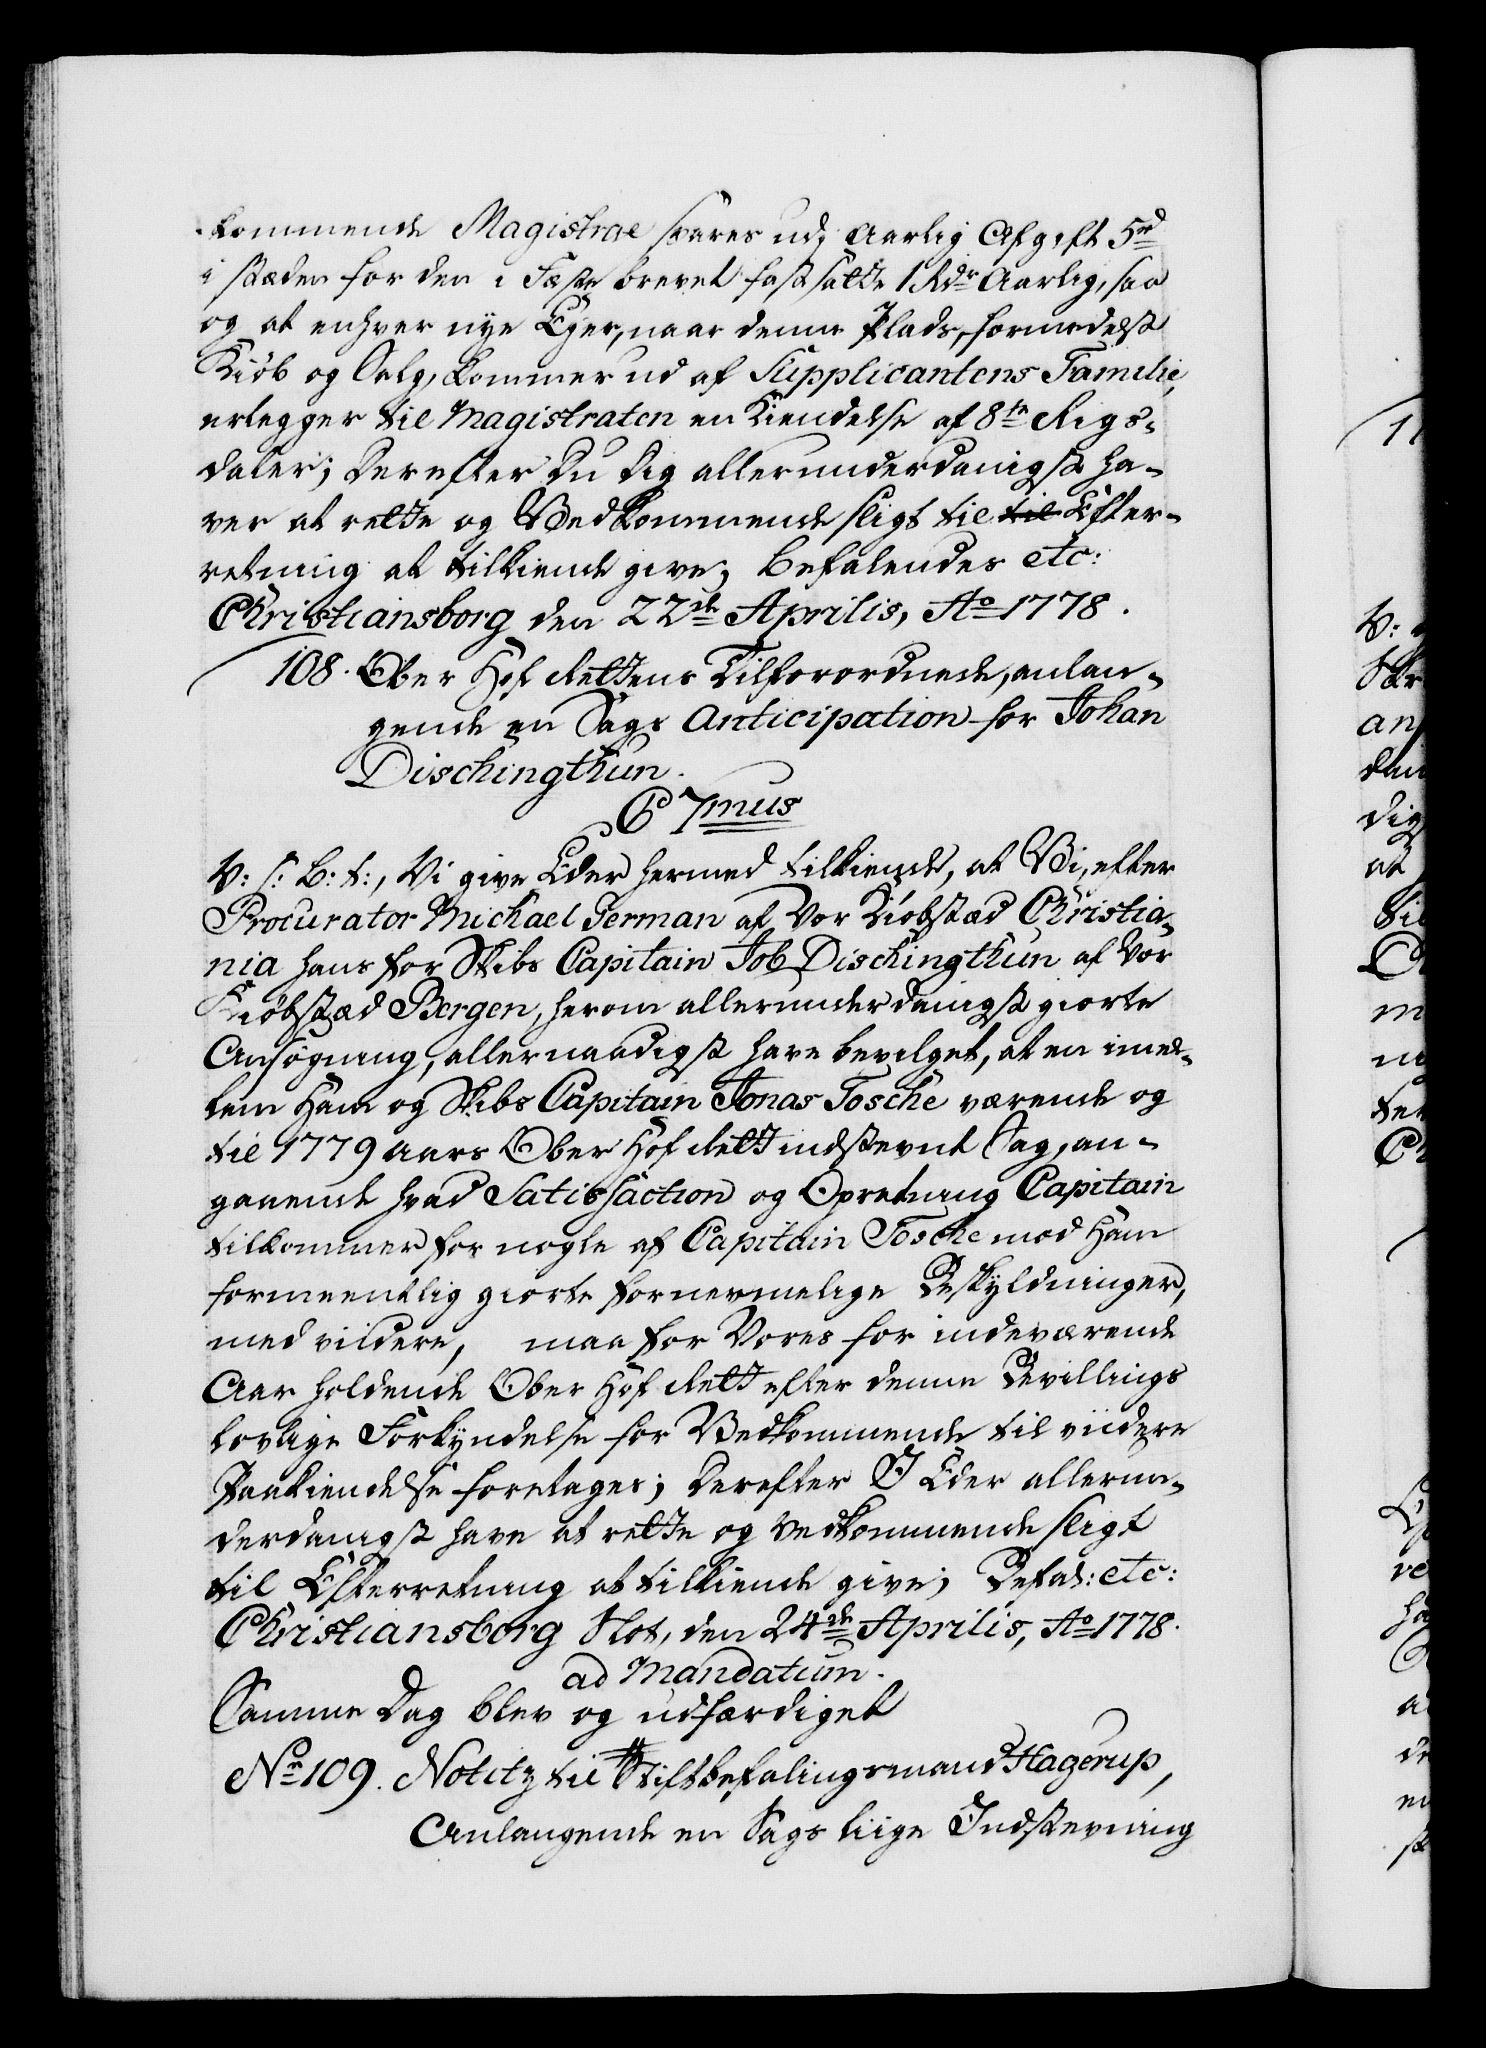 kommende Magistrae svares udj aarlig Afgift 5rd
i stæden for den i Fæste brevet fastsatte 1 Rdr Aarlig, saa
og at enhver nye Ejer, naar denne Plads, formedelst
Kiøb og Salg, kommer ud af Supplicantens Familie,
erlegger til Magistraten en Kiendelse af 8te Rigs-
daler; Derefter Du dig allerunderdanigst ha-
ver at rette og Vedkommende sligt til til Efter-
retning at tilkiende give; Befalendes etc:
Christiansborg den 22de Aprilis, Ao 1778.
108. Ober Hof Rettens Tilforordnede, anlan-
gende en Sags Anticipation for Johan
Dischingthun.
C 7mus
V: s: B: t:, Vi give Eder hermed tilkiende, at Vi, efter
Procurator Michael German af Vor Kiøbstæd Christia-
nia hans for Skibs Capitain Job Dischingthun af Vor
Kiøbstæd Bergen, herom allerunderdanigst giorte
Ansøgning, allernaadigst have bevilget, at en imel-
lem Ham og Skibs Capitain Jonas Tosche værende og
til 1779 aars Ober Hof Rett indstevnt Sag, an-
gaaende hvad Satisfaction og Opretning Capitain
tilkommer for nogle af Capitain Tosche mod Ham
formeentlig giorte fornermelige Beskyldninger,
med viidere, maa for Vores for indeværende
Aar holdende Ober Hof Rett efter denne Bevillings
lovlige Forkyndelse for Vedkommende til viidere
Paakiendelse foretages; Derefter I Eder allerun-
derdanigst have at rette og vedkommende sligt
til Efterretning at tilkiende give; Befal: etc:
Christiansborg Slot, den 24de Aprilis, Ao 1778.
ad Mandatum.
Samme Dag blev og udfærdiget
No 109. Notitz til Stiftbefalingsmand Hagerup,
Anlangende en Sags liige Indstevning